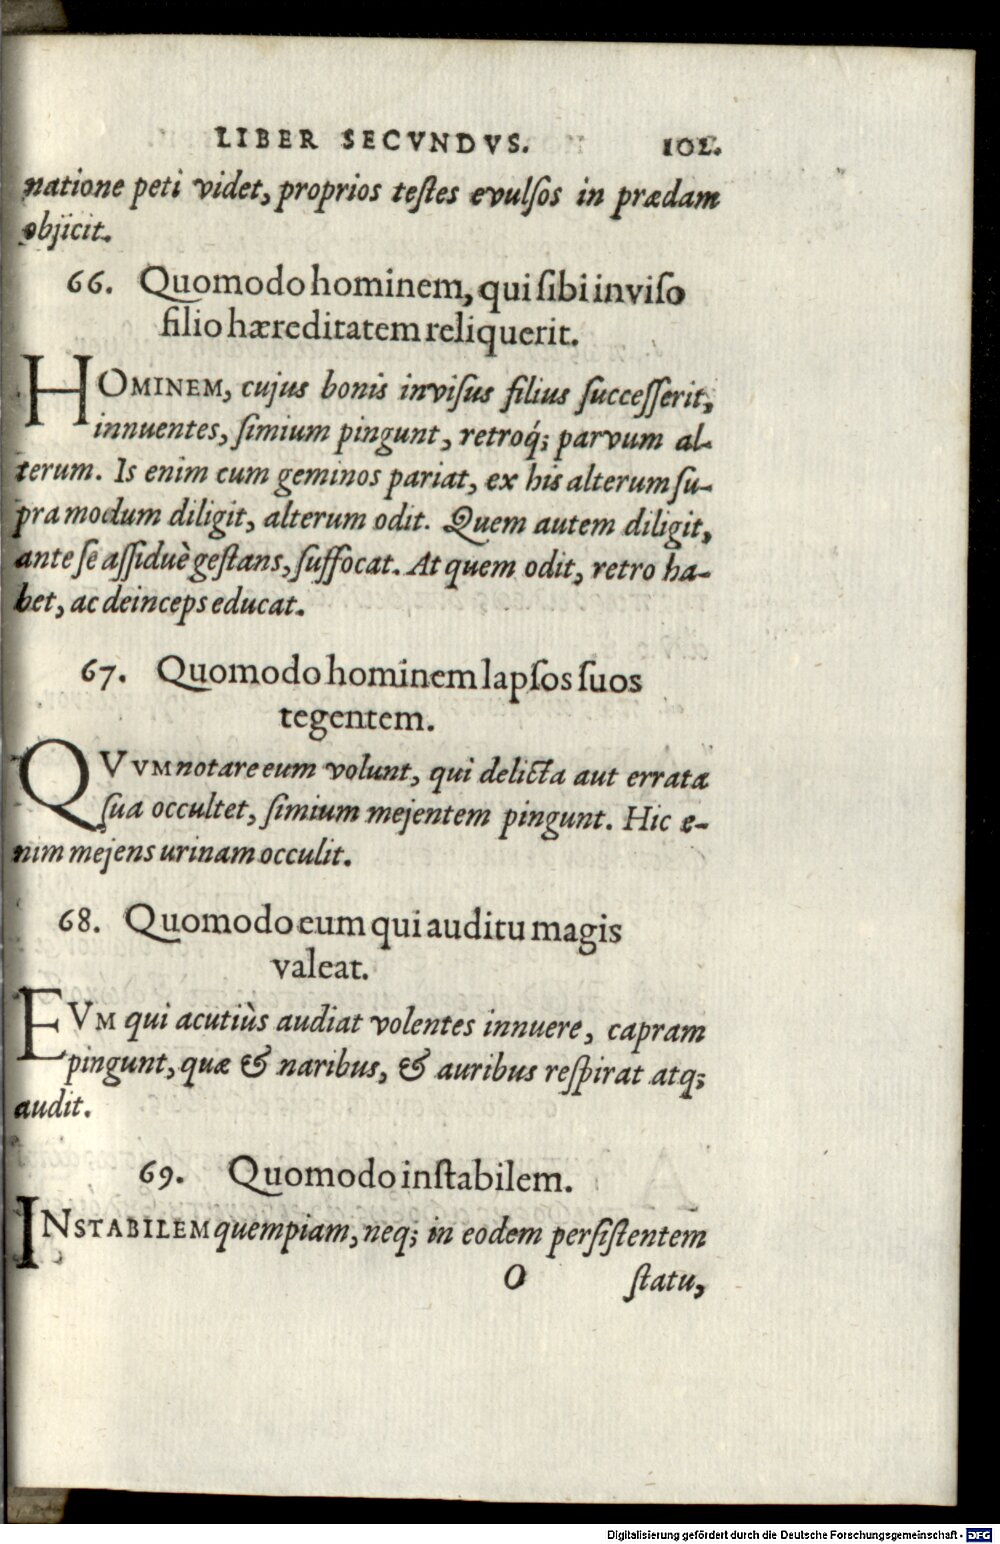 LIBER SECVNDVS. 101.
natione peti videt, proprios teſtes evulſos in prædam
objicit.
66. Quomodo hominem, qui ſibi inviſo
filio hæreditatem reliquerit.
HOMINEM, cujus bonis inviſus filius ſucceſſerit,
innuentes, ſimium pingunt, retroq́; parvum al-
terum. Is enim cum geminos pariat, ex his alterum ſu-
pra modum diligit, alterum odit. Quem autem diligit,
ante ſe aſſiduè geſtans, ſuffocat. At quem odit, retro ha-
bet, ac deinceps educat.
67. Quomodo hominem lapſos ſuos
tegentem.
QVVM notare eum volunt, qui delicta aut errata
ſua occultet, ſimium mejentem pingunt. Hic e-
nim mejens urinam occulit.
68. Quomodo eum qui auditu magis
valeat.
EVM qui acutiùs audiat volentes innuere, capram
pingunt, quæ & naribus, & auribus reſpirat atq;
audit.
69. Quomodo inſtabilem.
INSTABILEM quempiam, neq; in eodem perſiſtentem
O ſtatu,
Digitalisierung gefördert durch die Deutsche Forschungsgemeinschaft - DFG